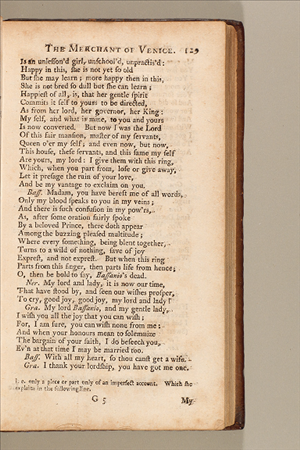 The Merchant of Venice. 129
Is an unlesson'd girl, unschool'd, unpractis'd:
Happy in this, she is not yet so old
But she may learn; more happy then in this,
She is not bred so dull but she can learn;
Happiest of all, is, that her gentle spirit
Commits it self to yours to be directed,
As from her lord, her governor, her King:
My self, and what is mine, to you and yours
Is now converted. But now I was the Lord
Of this fair mansion, master of my servants,
Queen o'er my self; and even now, but now,
This house, these servants, and this same my self
Are yours, my lord: I give them with this ring,
Which, when you part from, lose or give away,
Let it presage the ruin of your love,
And be my vantage to exclaim on you.
Bass. Madam, you have bereft me of all words,
Only my blood speaks to you in my veins;
And there is such confusion in my pow'rs,
As, after some oration fairly spoke
By a beloved Prince, there doth appear
Among the buzzing pleased multitude;
Where every something, being blent together,
Turns to a wild of nothing, save of joy
Exprest, and not exprest. But when this ring
Parts from this finger, then parts life from hence;
O, then be bold to say, Bassanio's dead.
Ner. My lord and lady, it is now our time,
That have stood by, and seen our wishes prosper,
To cry, good joy, good joy, my lord and lady!
Gra. My lord Bassanio, and my gentle lady,
I wish you all the joy that you can wish;
For, I am sure, you can wish none from me:
And when your honours mean to solemnize
The bargain of your faith, I do beseech you,
Ev'n at that time I may be married too.
Bass. With all my heart, so thou canst get a wife.
Gra. I thank your lordship, you have got me one.
i. e. only a piece or part only of an imperfect account. Which she
explains in the following line.
G 5 My